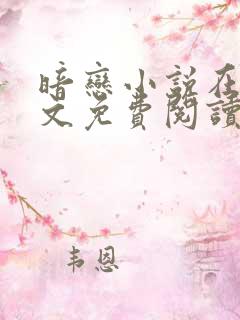 暗戀小說在
文免費閱讀
韦恩